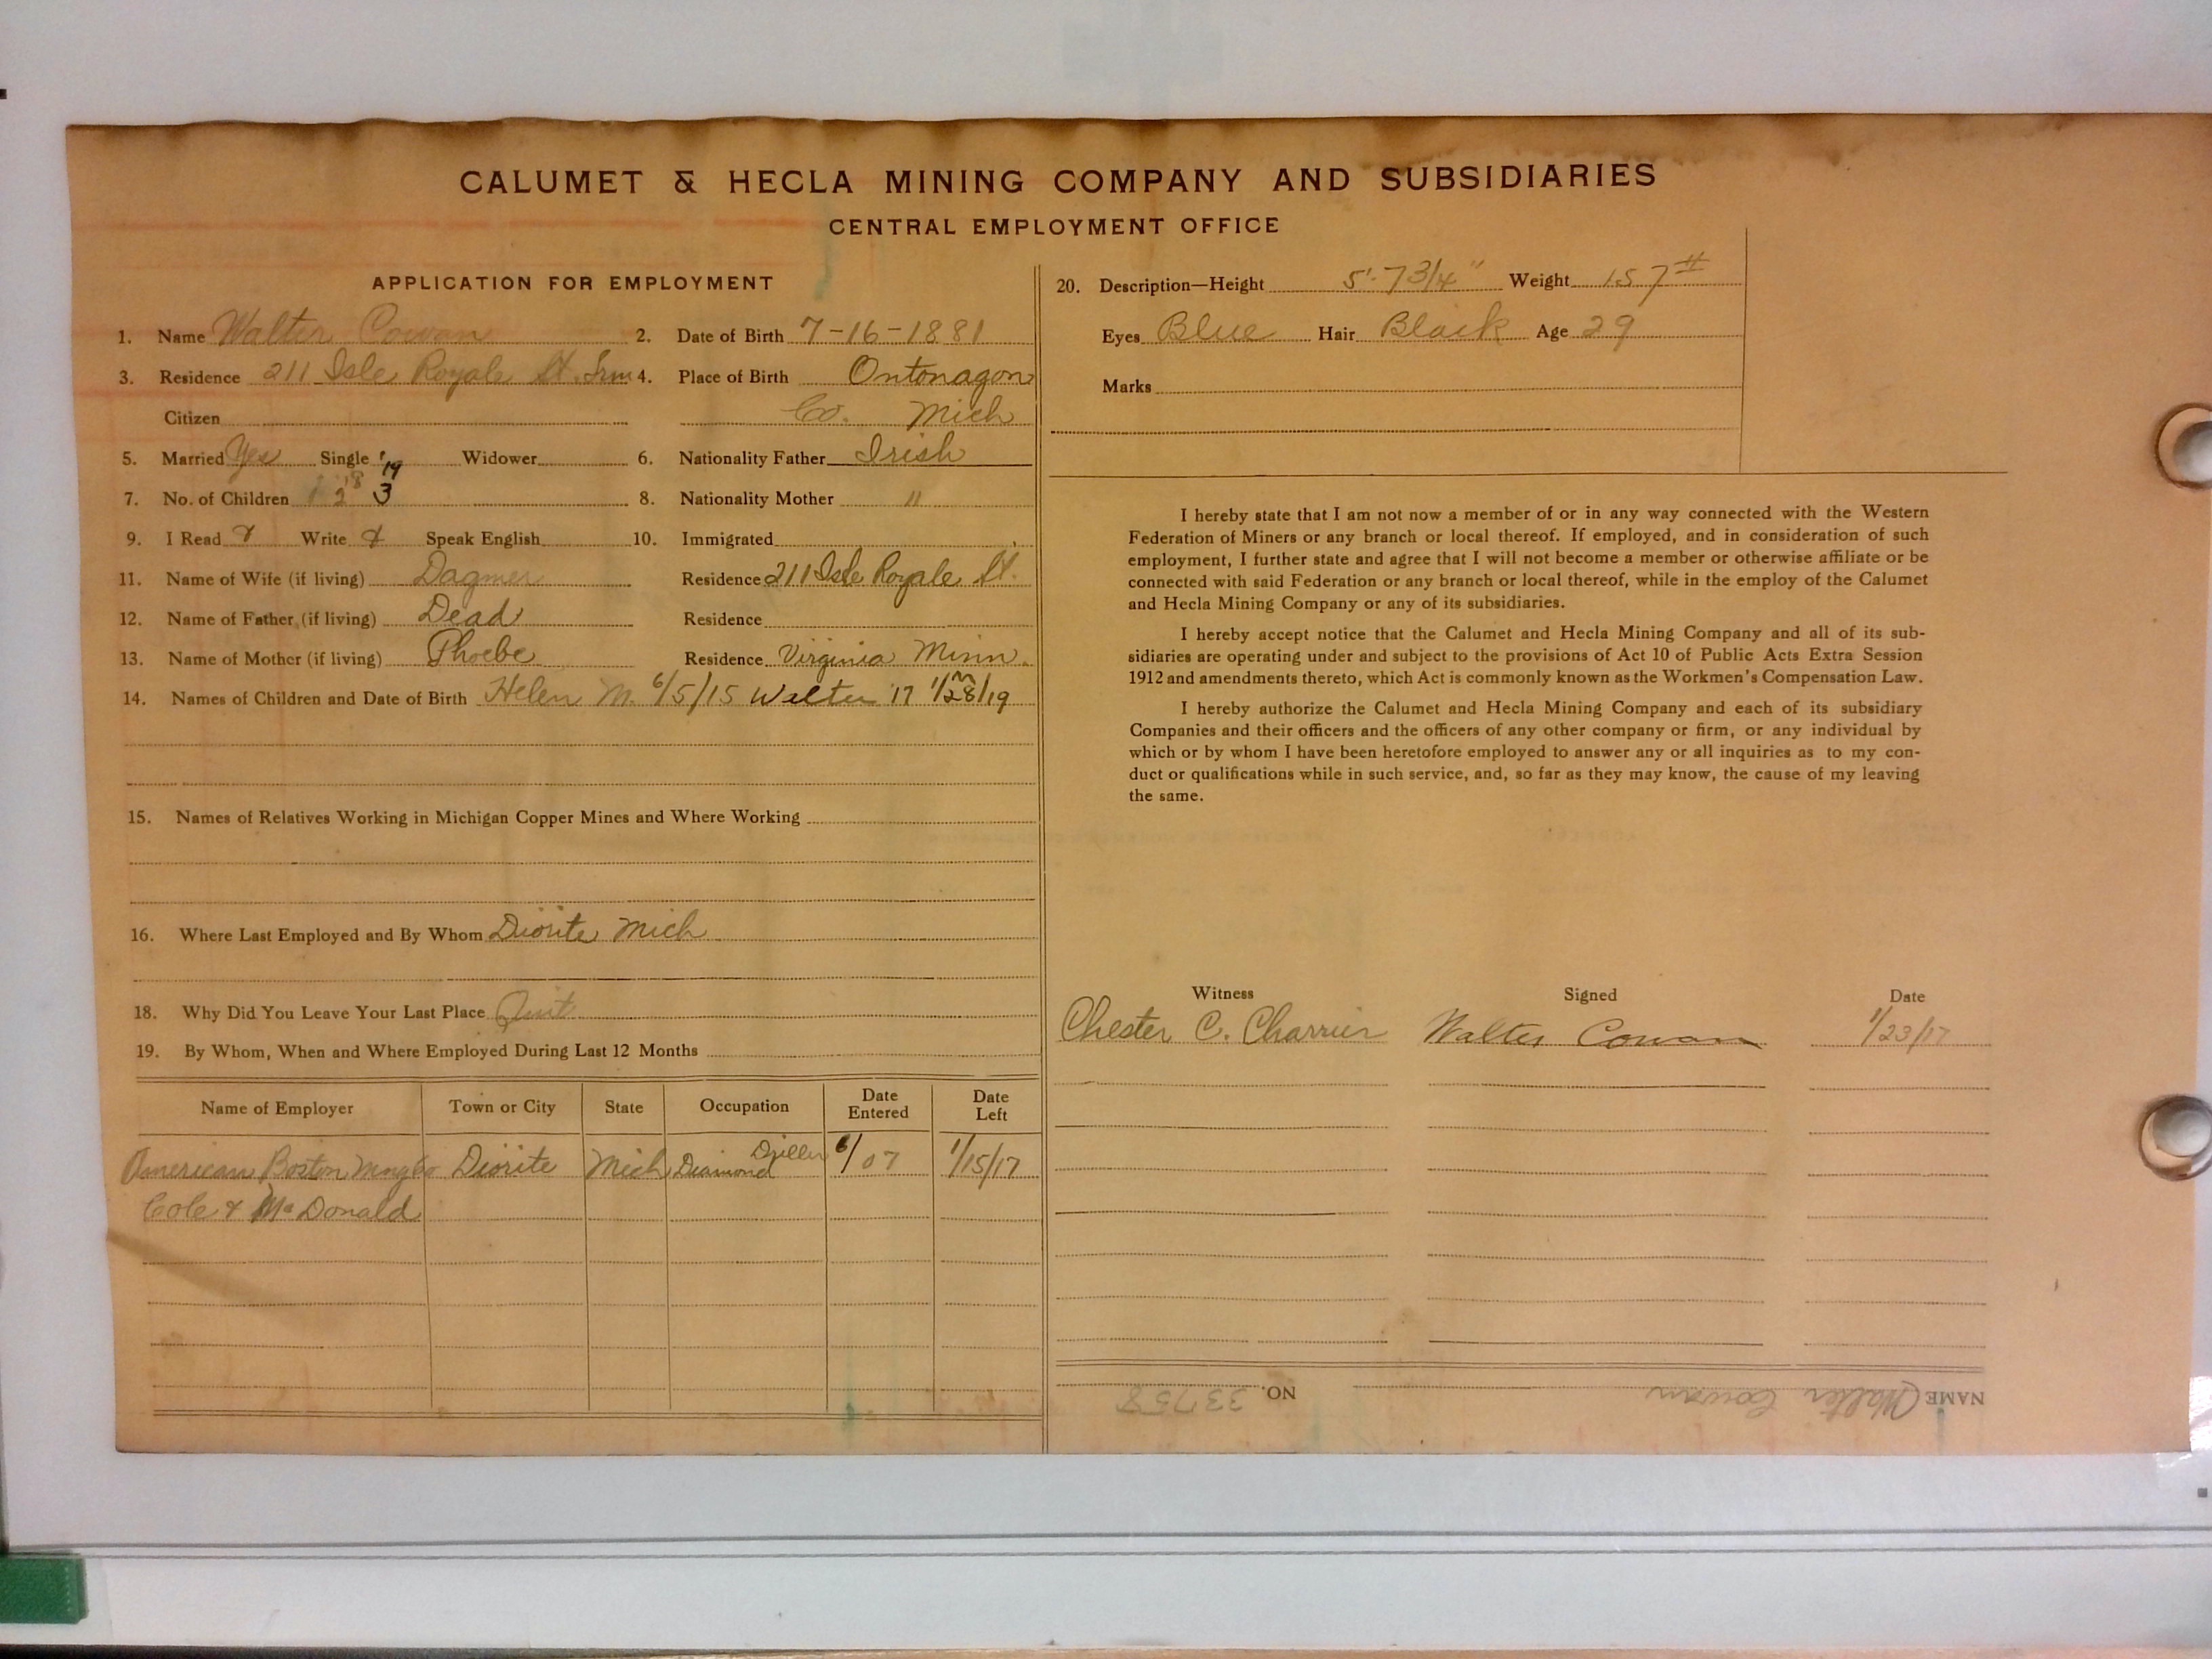 CALUMET & HECLA MINING COMPANY AND SUBSIDIARIES
CENTRAL EMPLOYMENT OFFICE
APPLICATION FOR EMPLOYMENT
1. Name Walter Cowan
2. Date of Birth 7-16-1881
3. Residence 211 Isle Royale St.
4. Place of Birth Ontonagon
Citizen
Co. Mich
5. Married Yes Single Widower
6. Nationality Father Irish
7. No. of Children 1 2 '18 3 '19
8. Nationality Mother "
9. I Read Y Write Y Speak English
10. Immigrated
11. Name of Wife (if living) Dagmer
Residence 211 Isle Royale St.
12. Name of Father (if living) Dead
Residence
13. Name of Mother (if living) Phoebe
Residence Virginia Minn.
14. Names of Children and Date of Birth Helen M. 6/5/15 Walter '17 m 1/28/19
15. Names of Relatives Working in Michigan Copper Mines and Where Working
16. Where Last Employed and By Whom Diorite Mich
18. Why Did You Leave Your Last Place Quit
19. By Whom, When and Where Employed During Last 12 Months
Name of Employer Town or City State Occupation Date Entered Date Left
American Boston Mng Co Diorite Mich Diamond Driller 6/07 1/15/17
Cole & McDonald
20. Description—Height 5'-7 3/4" Weight 157#
Eyes Blue Hair Black Age 29
Marks
I hereby state that I am not now a member of or in any way connected with the Western
Federation of Miners or any branch or local thereof. If employed, and in consideration of such
employment, I further state and agree that I will not become a member or otherwise affiliate or be
connected with said Federation or any branch or local thereof, while in the employ of the Calumet
and Hecla Mining Company or any of its subsidiaries.
I hereby accept notice that the Calumet and Hecla Mining Company and all of its sub-
sidiaries are operating under and subject to the provisions of Act 10 of Public Acts Extra Session
1912 and amendments thereto, which Act is commonly known as the Workmen's Compensation Law.
I hereby authorize the Calumet and Hecla Mining Company and each of its subsidiary
Companies and their officers and the officers of any other company or firm, or any individual by
which or by whom I have been heretofore employed to answer any or all inquiries as to my con-
duct or qualifications while in such service, and, so far as they may know, the cause of my leaving
the same.
Witness Signed Date
Chester C. Charrier Walter Cowan 1/23/17
NAME Walter Cowan NO. 33758